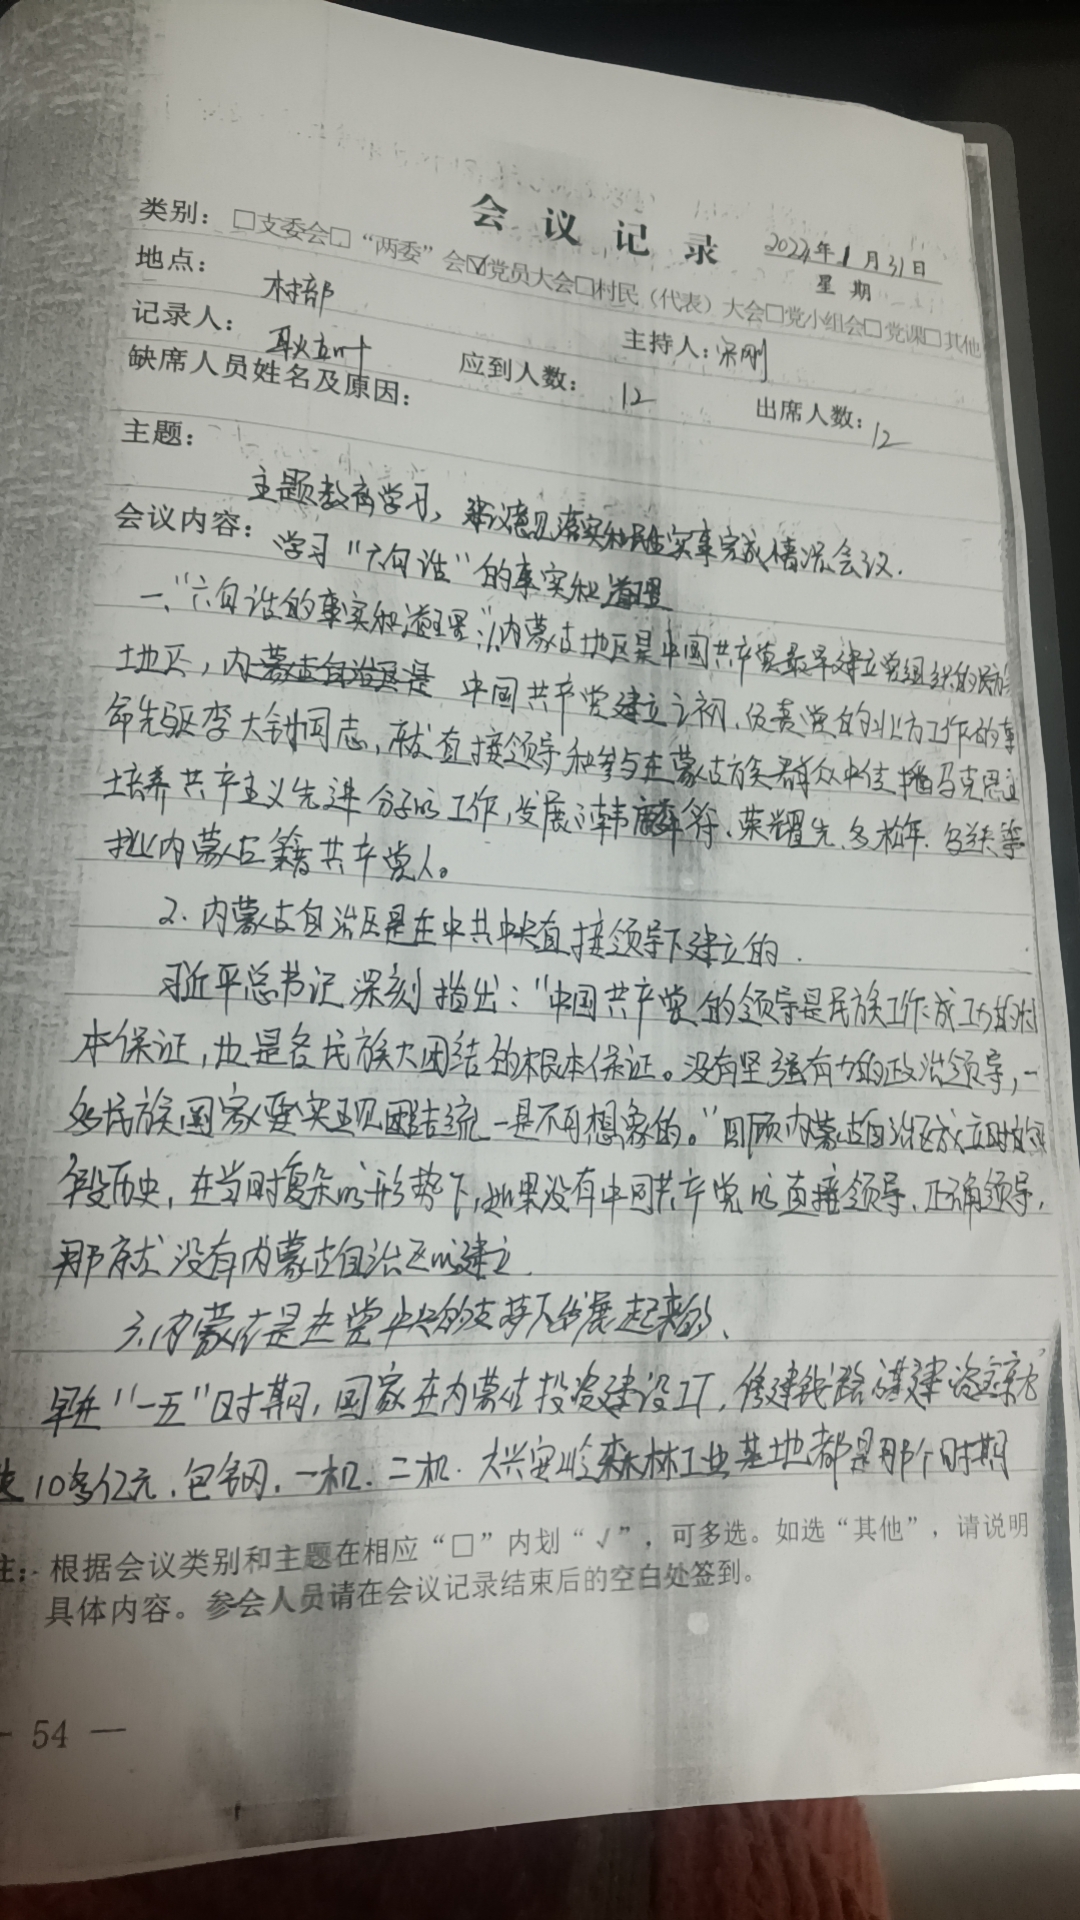 会 议 记 录
2024年1月31日
星 期
类别：□支委会□“两委”会☑党员大会□村民（代表）大会□党小组会□党课□其他
地点：村部
主持人：宋刚
记录人：耿
应到人数：12
出席人数：12
缺席人员姓名及原因：
主题：
主题教育学习，意见落实和民生实事完成情况会议.
会议内容：学习“六句话”的事实和道理
一、“六句话的事实和道理：”1.内蒙古地区是中国共产党最早建立党组织的民族
地区，中国共产党建立之初，负责党的北方工作的革
命先驱李大钊同志，就直接领导和参与在蒙古族群众中传播马克思主
培养共产主义先进分子的工作，发展了韩麟符、荣耀先、多松年、乌兰夫等
批内蒙古籍共产党人。
2.内蒙古自治区是在中共中央直接领导下建立的.
习近平总书记深刻指出：“中国共产党的领导是民族工作成功的根
本保证，也是各民族大团结的根本保证。没有坚强有力的政治领导，一
多民族国家要实现团结统一是不可想象的。”回顾内蒙古自治区成立时的
段历史，在当时复杂的形势下，如果没有中国共产党的直接领导、正确领导，
那就没有内蒙古自治区的建立.
3.内蒙古是在党中央的支持下发展起来的、
早在“一五”时期，国家在内蒙古投资建设工厂，修建铁路 基建资
达10多亿元，包钢、一机、二机、大兴安岭森林工业基地都是那个时期
注：根据会议类别和主题在相应“□”内划“√”，可多选。如选“其他”，请说明
具体内容。参会人员请在会议记录结束后的空白处签到。
— 54 —